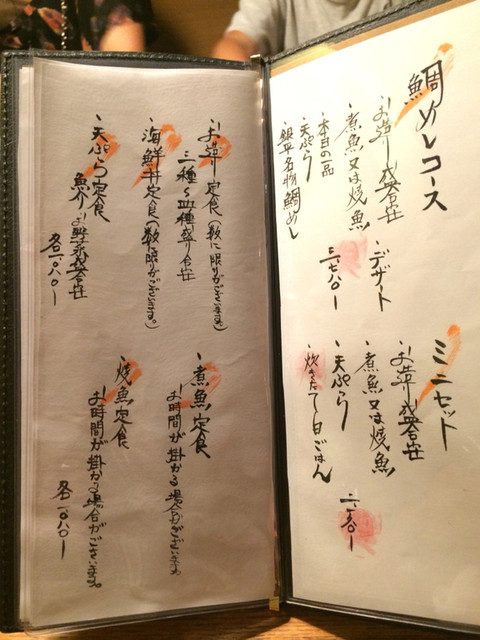 鯛めしコース
・お造り盛合せ
・煮魚又は焼魚
・本日の一品
・天ぷら
・銀平名物鯛めし
・デザート
三七〇〇ー
ミニセット
・お造り盛合せ
・煮魚又は焼魚
・天ぷら
・炊きたて白ごはん
・お造り定食(数に限りがございます)
三種〜四種盛り合せ
・海鮮丼定食(数限りがございます。)
・天ぷら定食
魚介お野菜盛合せ
各一〇八〇ー
・煮魚定食
お時間が掛かる場合がございます。
・焼魚定食
お時間が掛かる場合がございます。
各一〇八〇ー